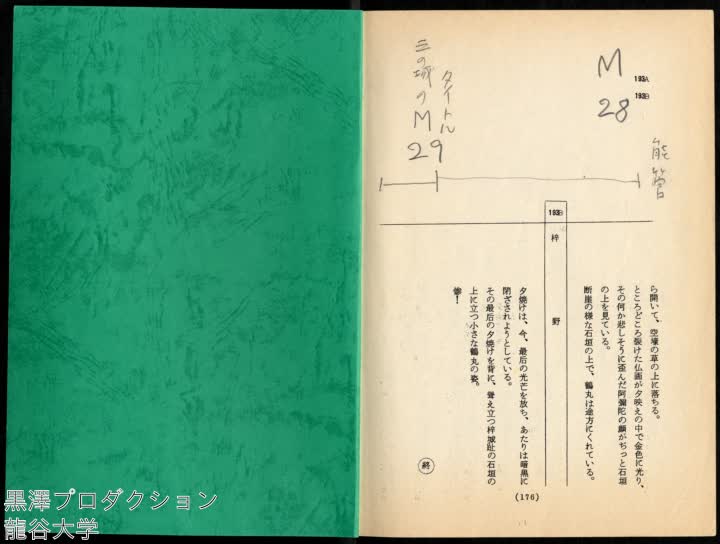 能管
M
28
193A
193B
タイトル
三の城のM
29
ら開いて、空壕の草の上に落ちる。
ところどころ裂けた仏画が夕映えの中で金色に光り、
その何か悲しそうに歪んだ阿彌陀の顔がぢっと石垣
の上を見ている。
断崖の様な石垣の上で、鶴丸は途方にくれている。
193B
梓 野
夕焼けは、今、最后の光芒を放ち、あたりは暗黒に
閉ざされようとしている。
その最后の夕焼けを背に、聳え立つ梓城趾の石垣の
上に立つ小さな鶴丸の姿。
惨！
終
(176)
黒澤プロダクション
龍谷大学